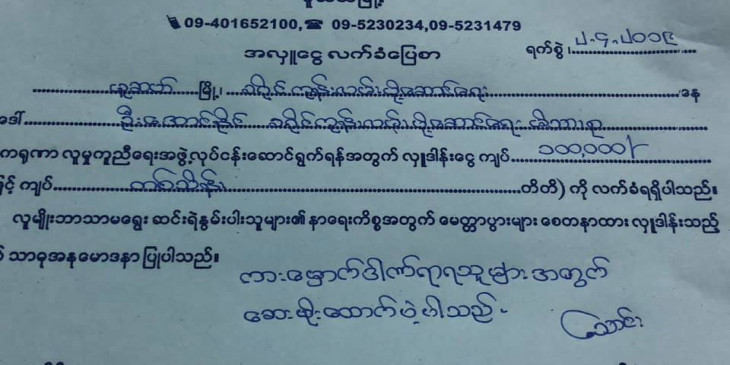 09-401652100, 09-5230234,09-5231479
အလှူငွေ လက်ခံပြေစာ
ရက်စွဲ ၊ ၂.၄.၂၀၁၉
မြို့၊ နေ
ဒေါ် ဦးအောင်နိုင်
ကရုဏာ လူမှုကူညီရေးအဖွဲ့လုပ်ငန်းဆောင်ရွက်ရန်အတွက် လှူဒါန်းငွေ ကျပ် ၁၀၀,၀၀၀/-
ဖြင့် ကျပ် တစ်သိန်း တိတိ) ကို လက်ခံရရှိပါသည်။
လူမျိုးဘာသာမရွေး ဆင်းရဲနွမ်းပါးသူများ၏ နာရေးကိစ္စအတွက် မေတ္တာပွားများ စေတနာထား လှူဒါန်းသည့်
သာဓုအနုမောဒနာ ပြုပါသည်။
ကားမှောက်ဒါဏ်ရာရသူများအတွက်
ဆေးဖိုးထောက်ပံ့ပါသည်။